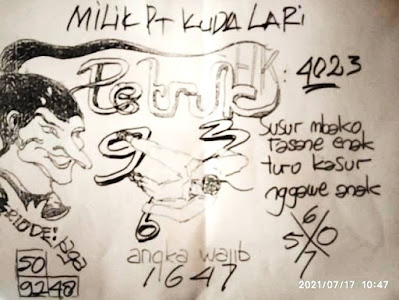 MILIK PT KUDA LARI
Petruk HK: 4023
9 3
6
susur mbako
rasane enak
turo kasur
nggawe anak
6
5 0
7
angka wajib
1647
50
9248
2021/07/17 10:47